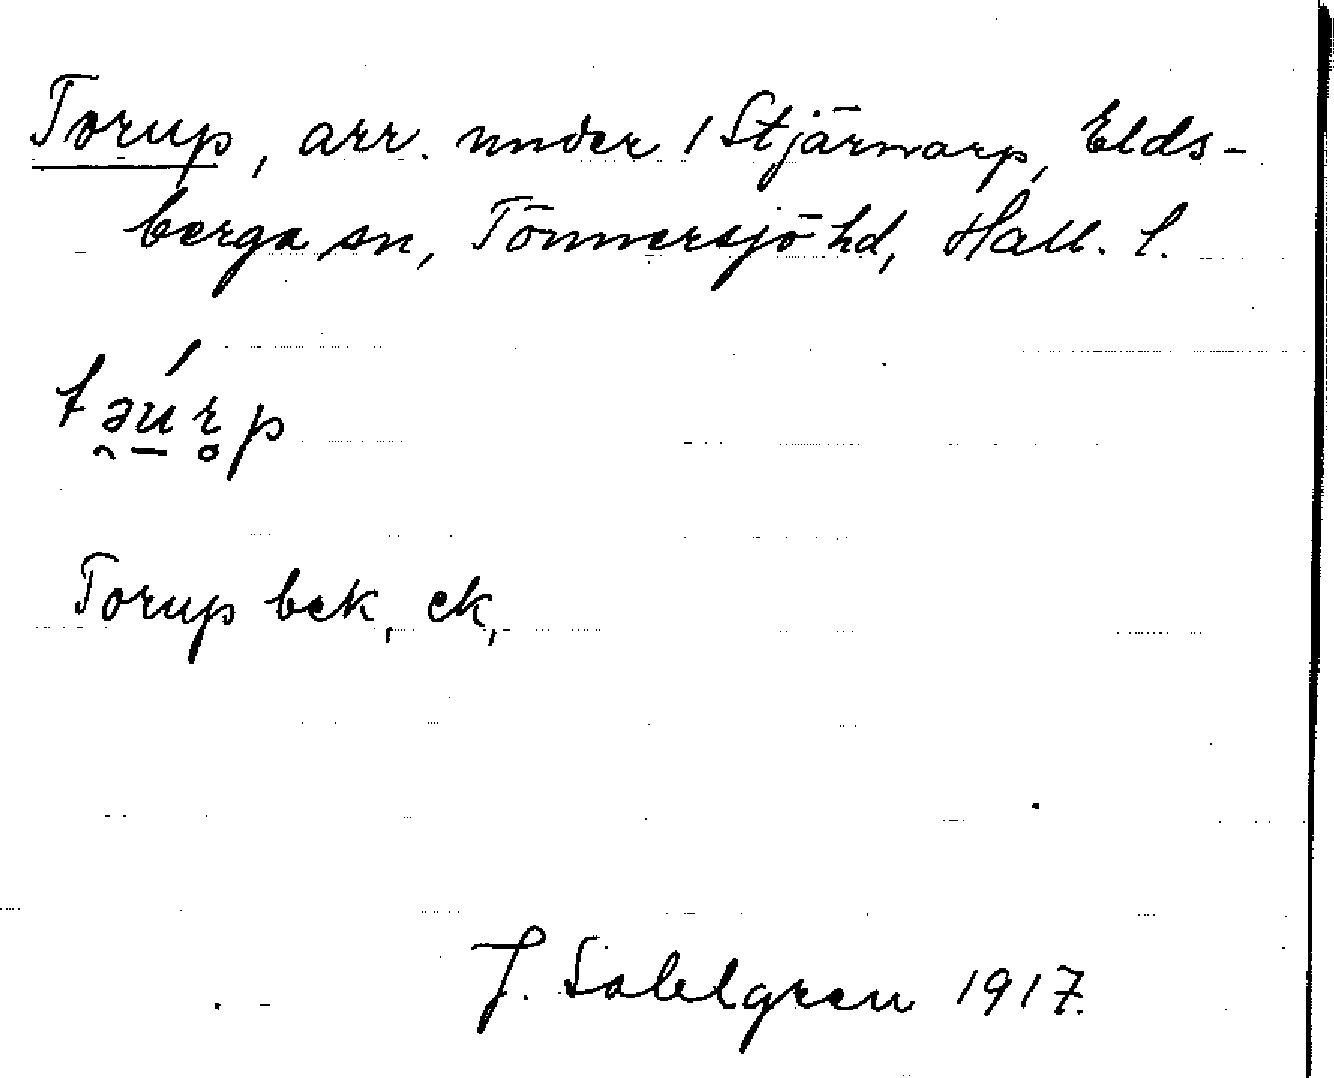 Torup, arr. under 1 Stjärnarp, Elds-
berga sn, Tönnersjö hd, Hall. l.
təu̱ŕ̥p
Torup bek, ek,
J. Sahlgren 1917.